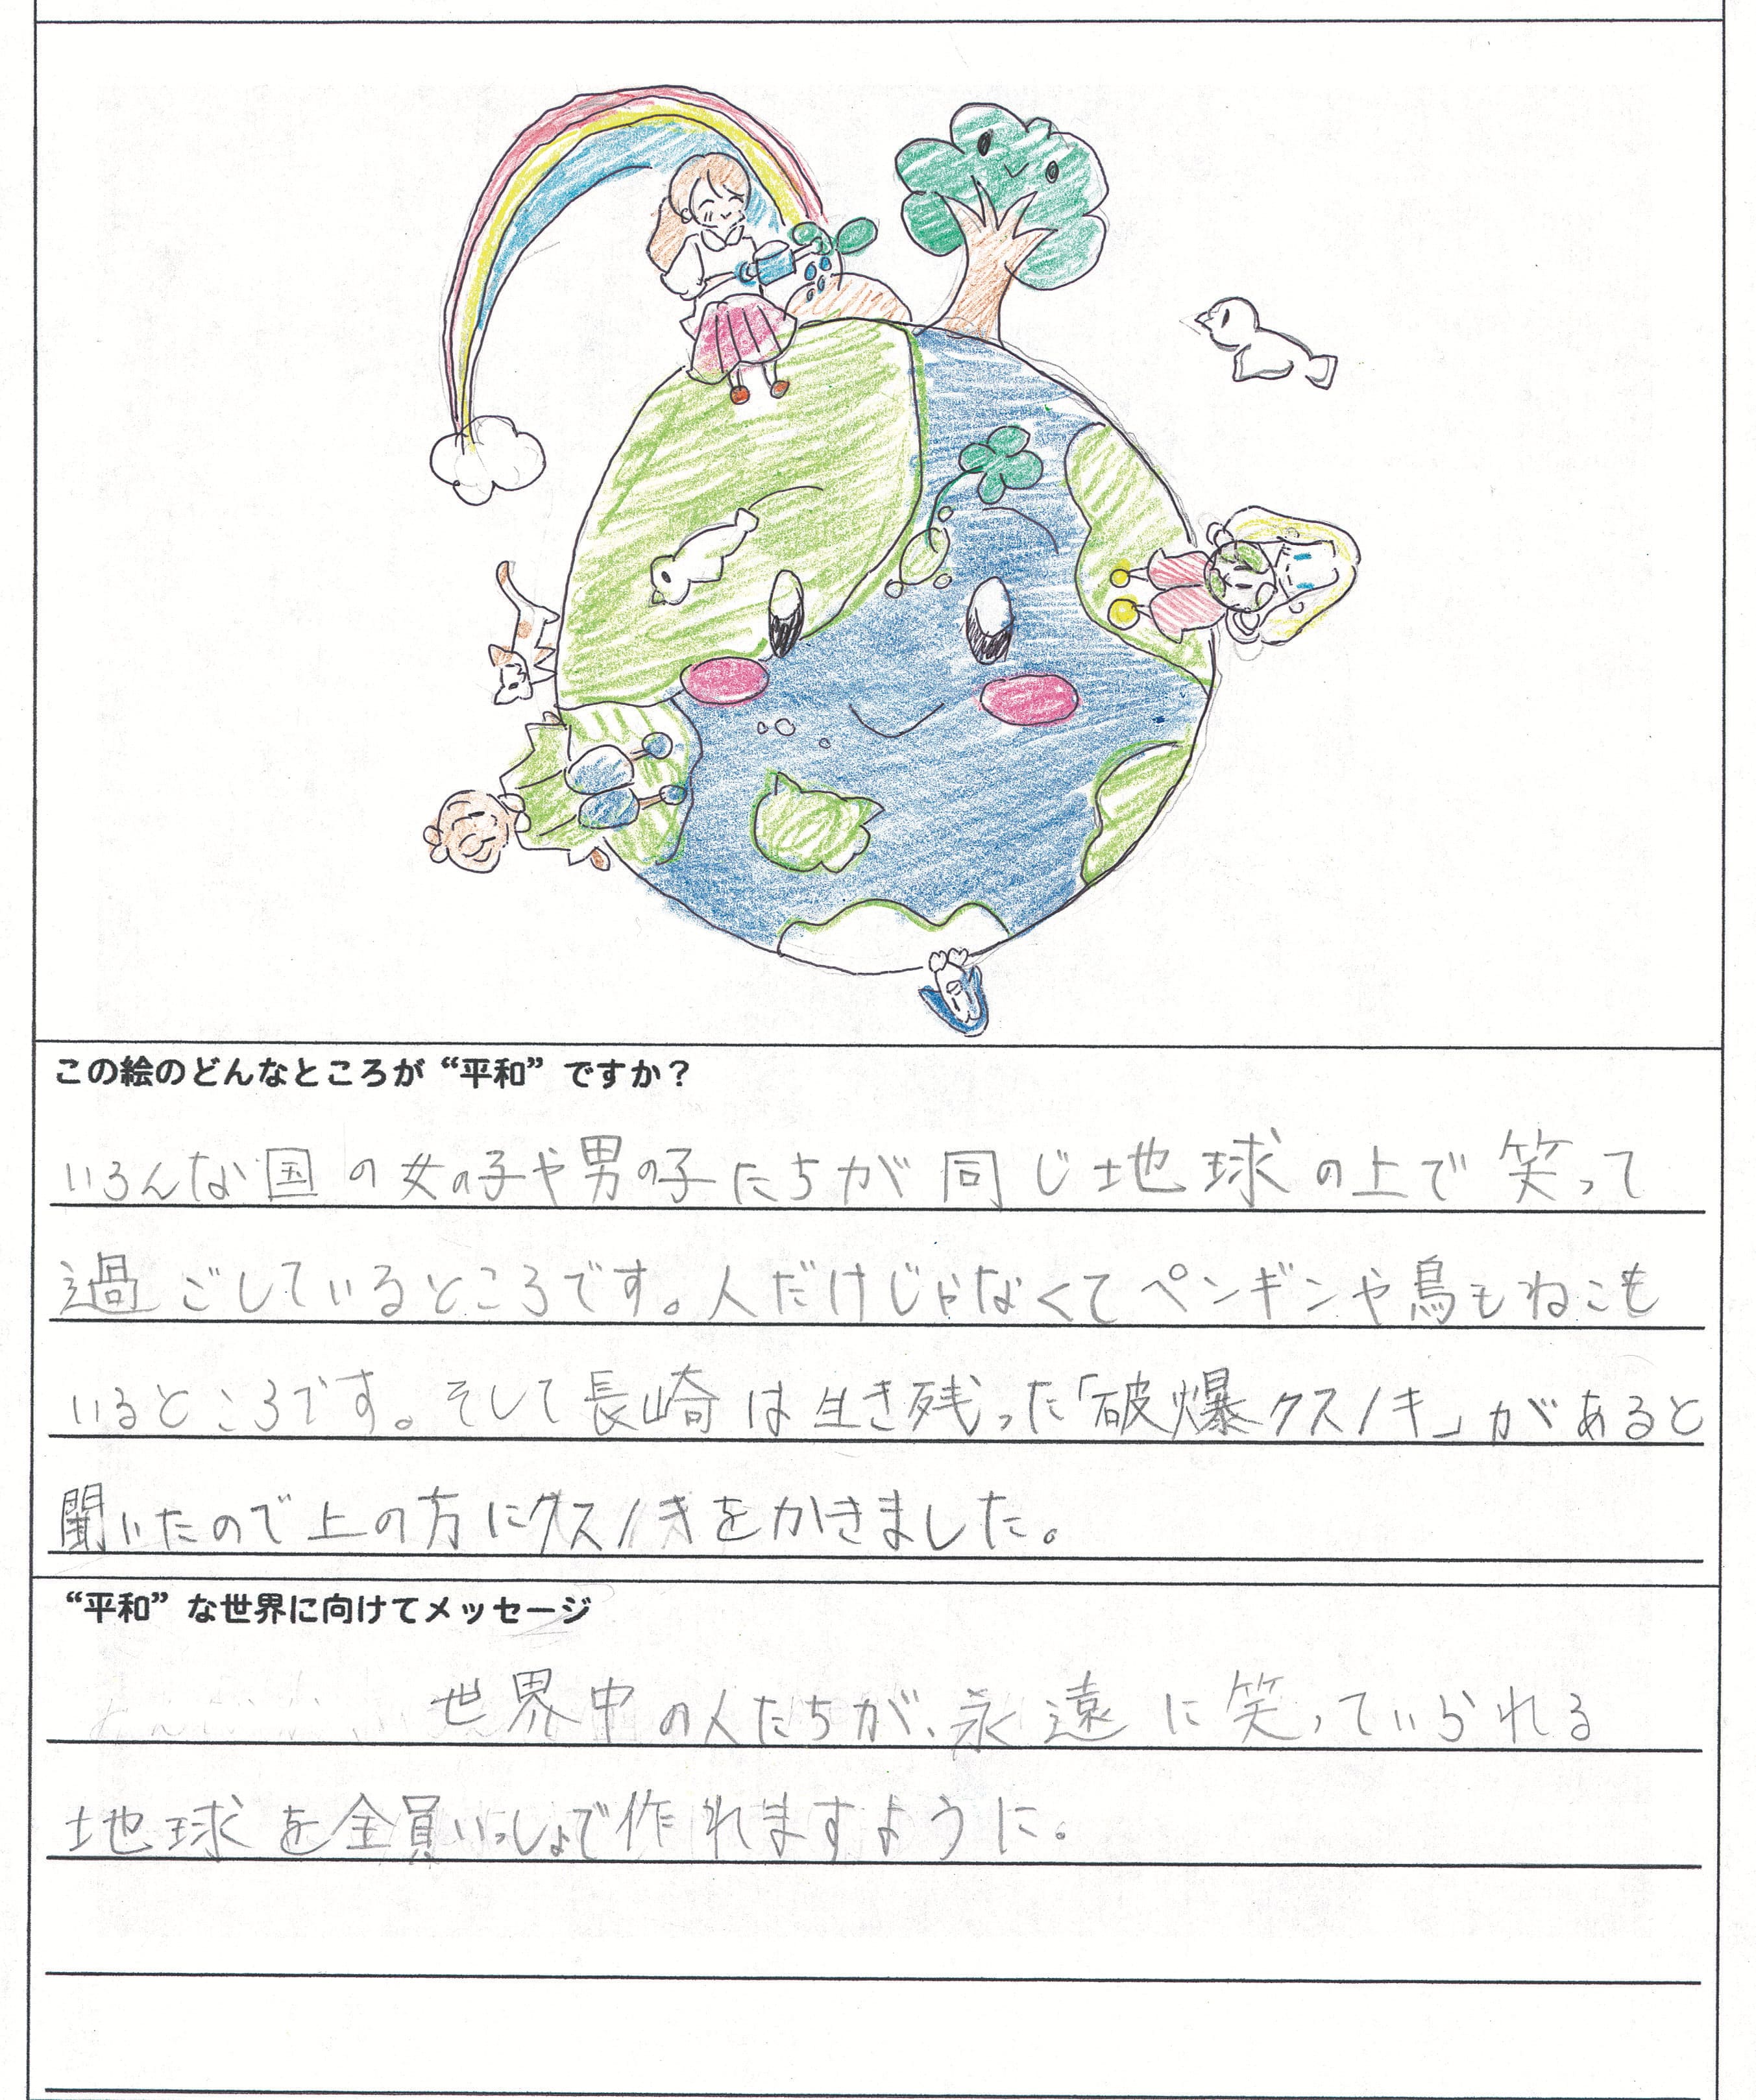 この絵のどんなところが“平和”ですか？
いろんな国の女の子や男の子たちが同じ地球の上で笑って
過ごしているところです。人だけじゃなくてペンギンや鳥もねこも
いるところです。そして長崎は生き残った「破爆クスノキ」があると
聞いたので上の方にクスノキをかきました。
“平和”な世界に向けてメッセージ
世界中の人たちが、永遠に笑っていられる
地球を全員いっしょで作れますように。